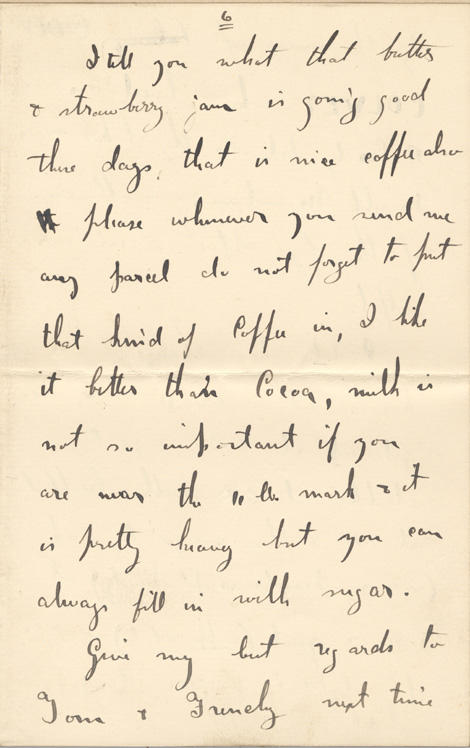 6
I tell you what that butter
& strawberry jam is going good
these days, that is nice coffee also
please whenever you send me
any parcel do not forget to put
that kind of Coffee in, I like
it better than Cocoa, milk is
not so important if you
are near the 11 lb mark & it
is pretty heavy but you can
always fill in with sugar.
Give my best regards to
Tom & Frenchy next time